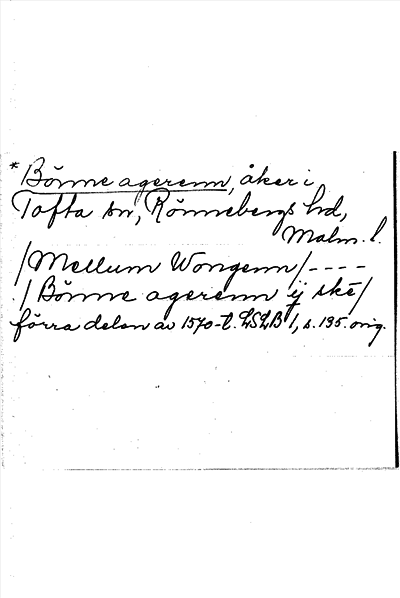 *Bönne agerenn, åker i
Tofta sn, Rönnebergs hd,
Malm. l.
/Mellum Wongenn/----
./Bönne agerenn ij ske/
förra delen av 1570-t. LSLB 1, s. 195. orig.